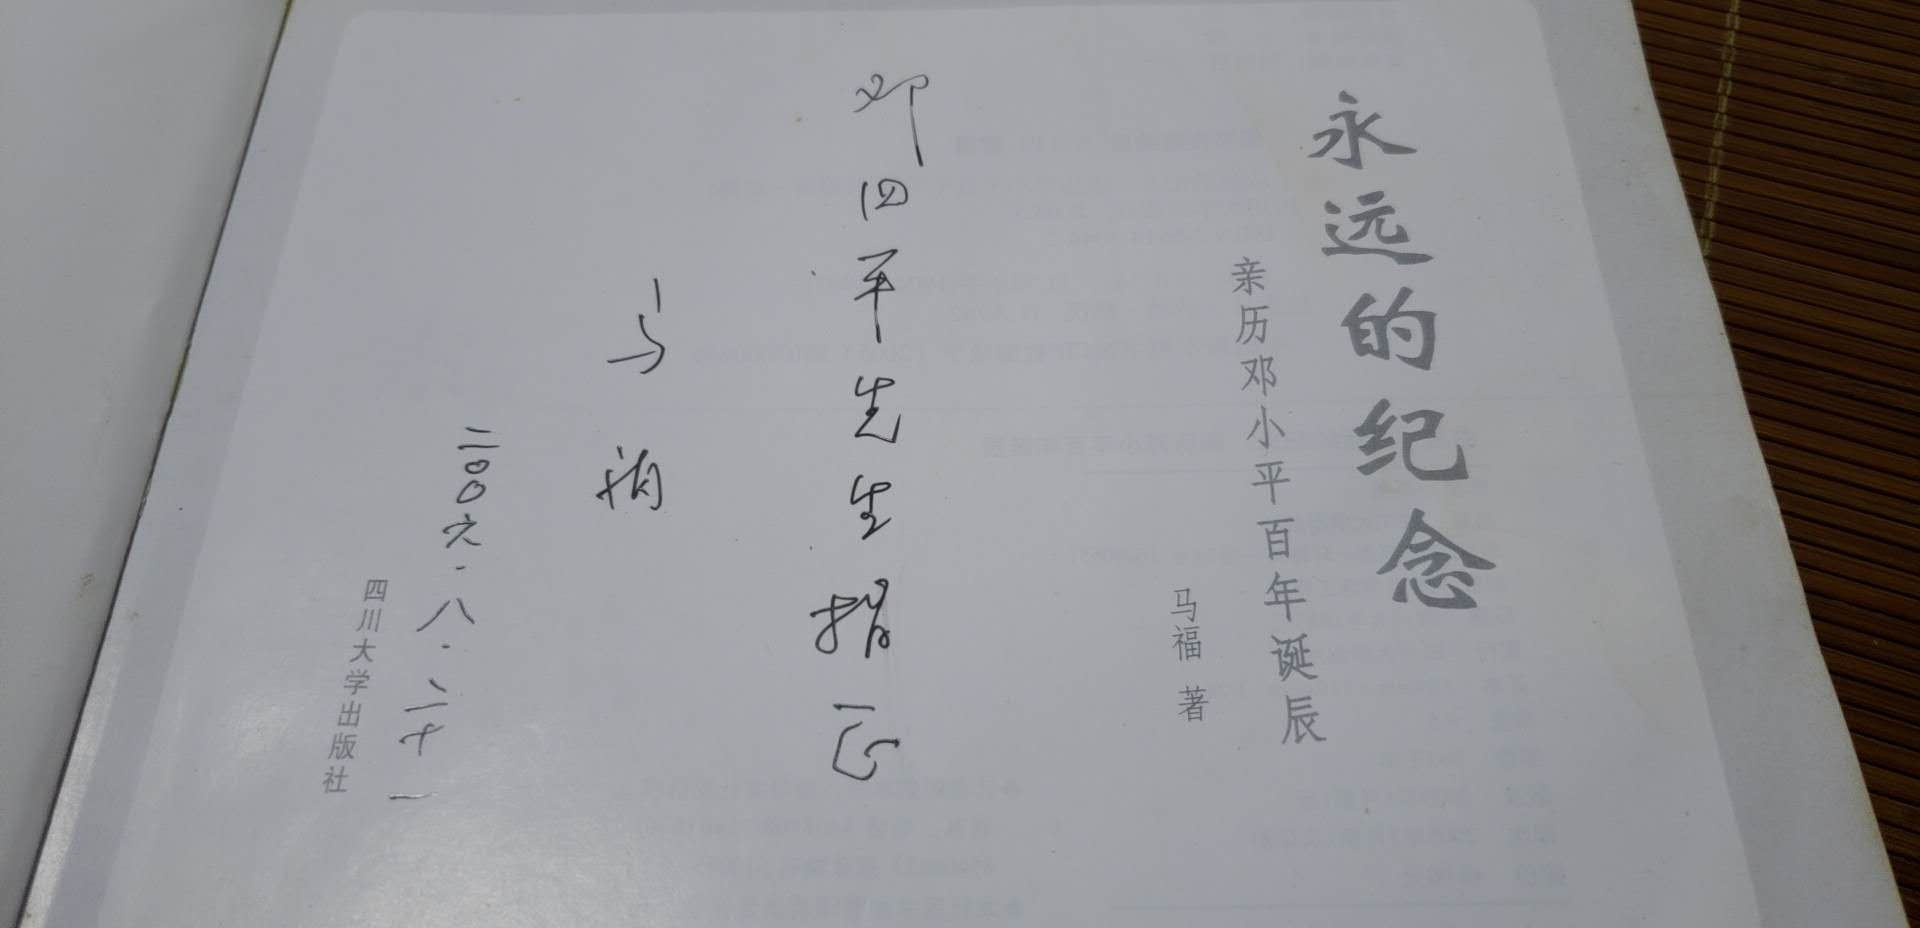 永远的纪念
亲历邓小平百年诞辰
马福 著
邓四平先生指正
马福
二〇〇六.八.二十一
四川大学出版社